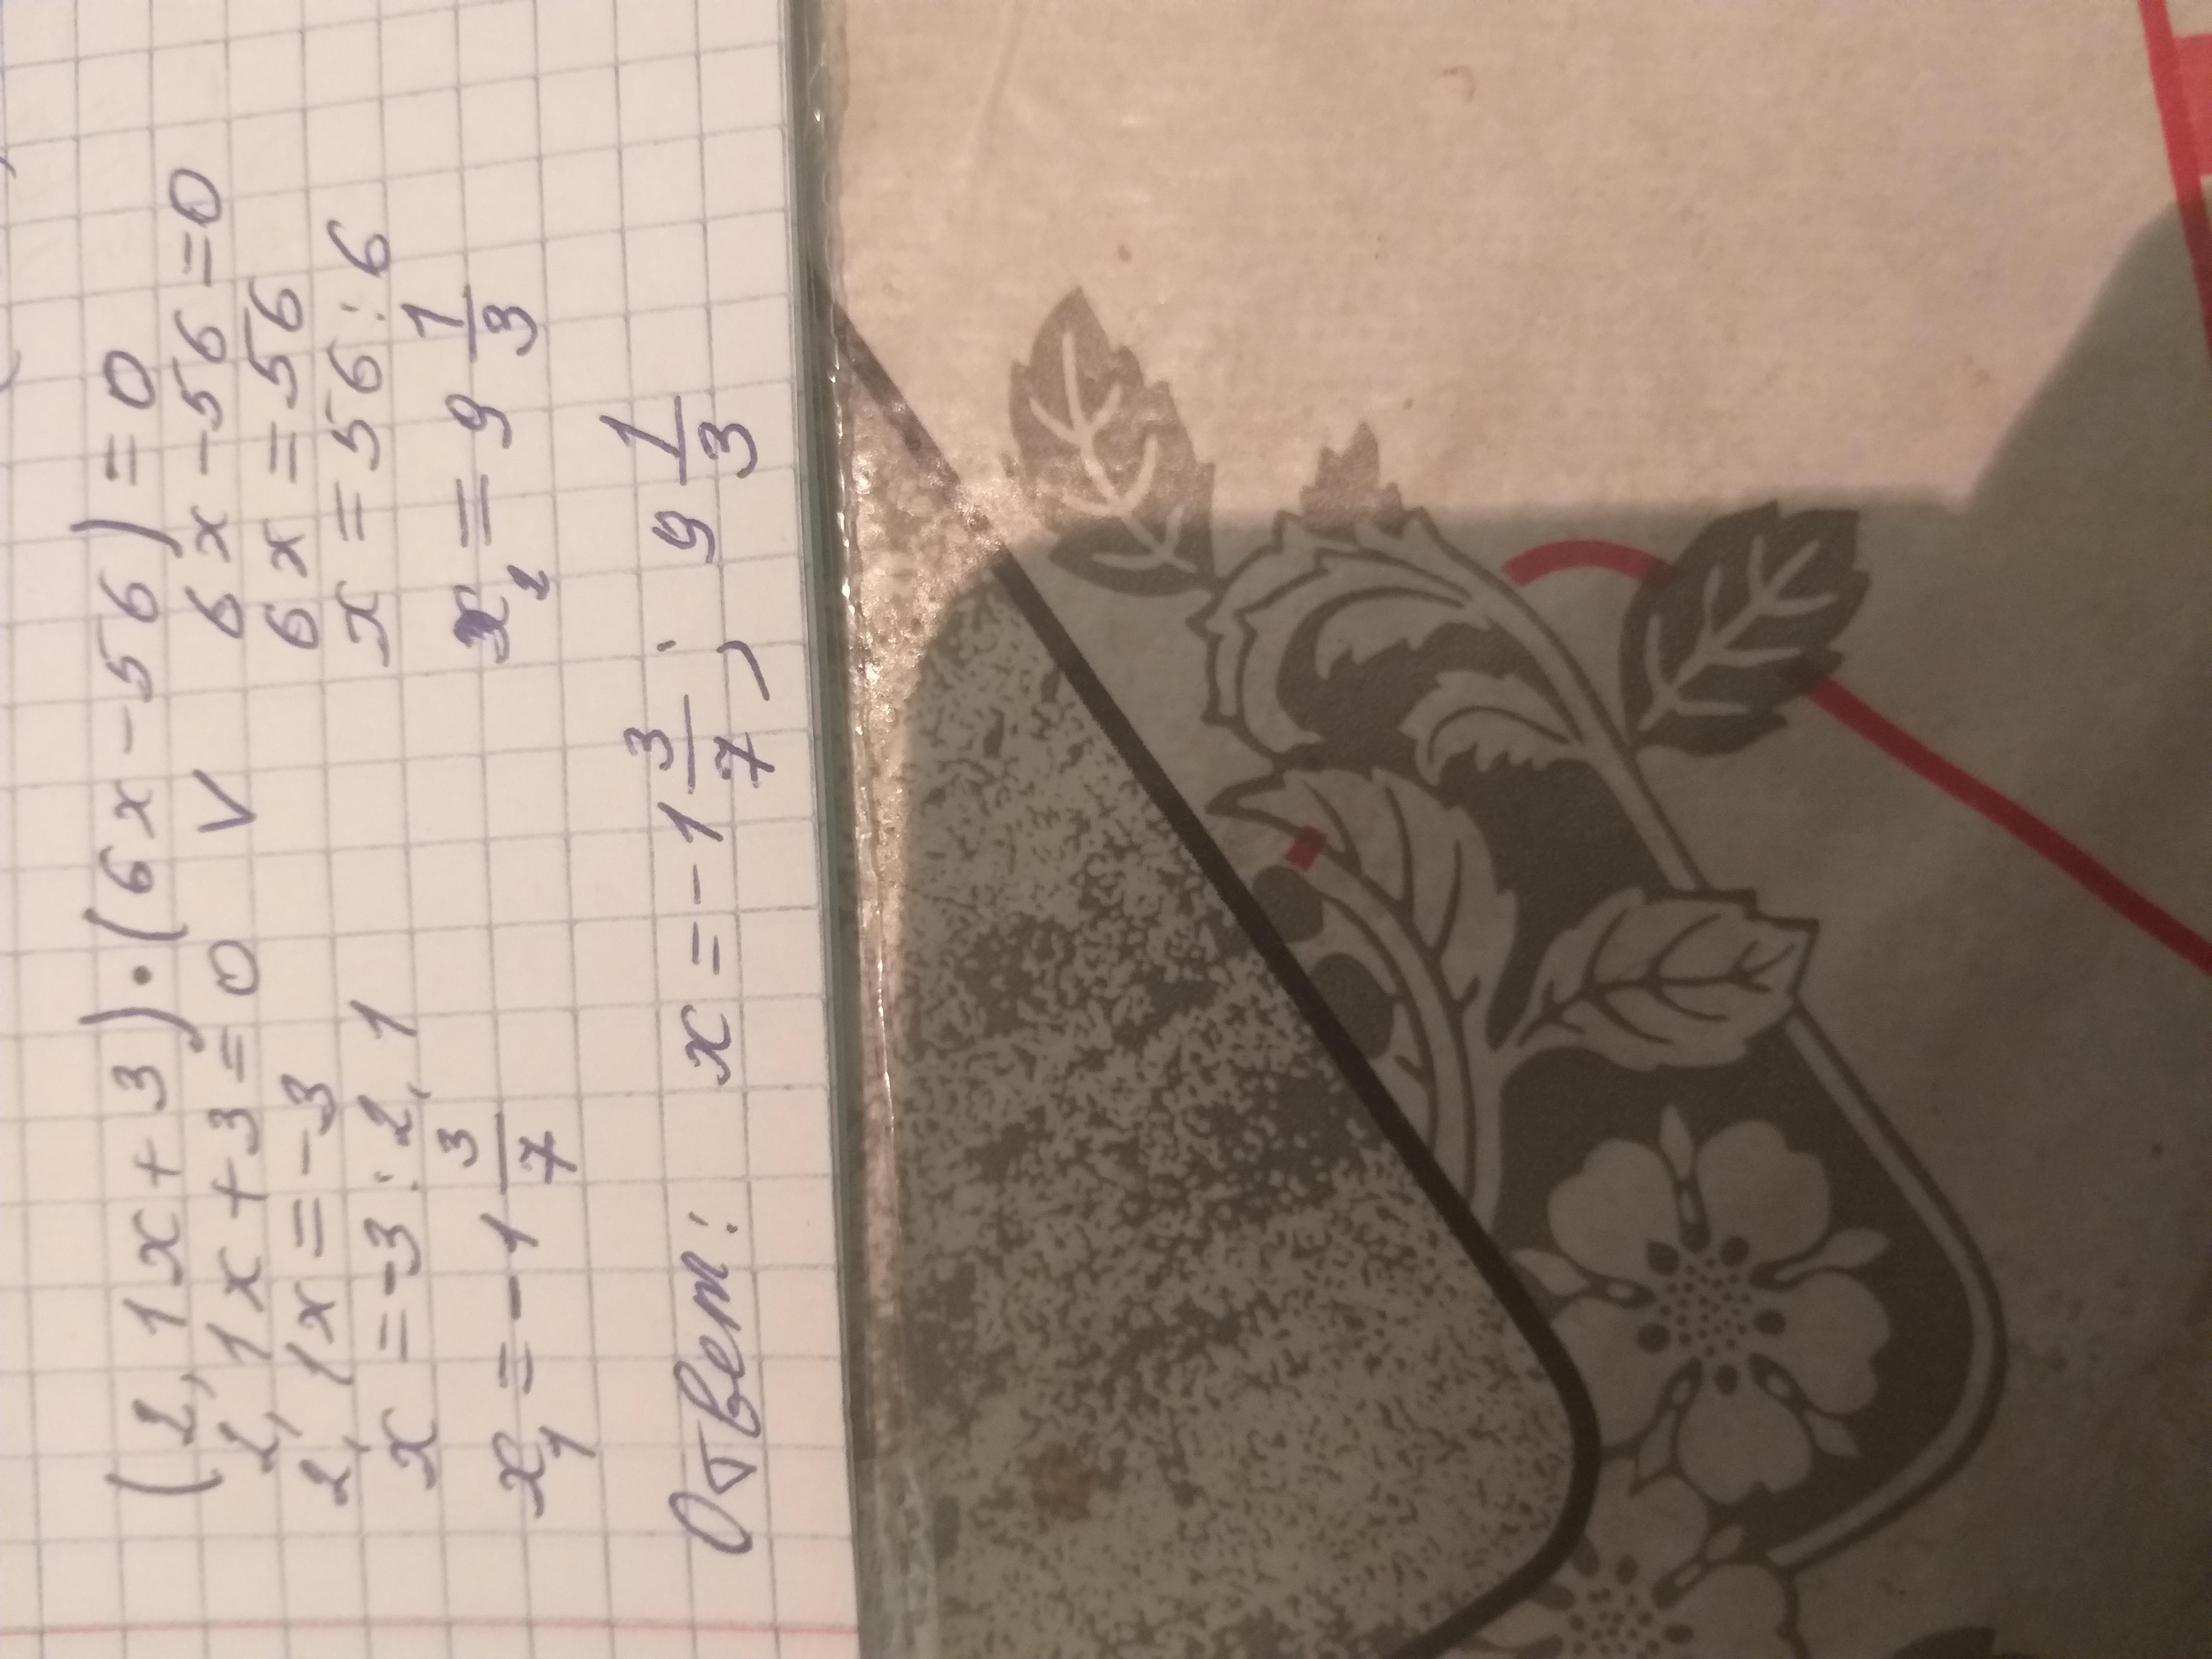 (2,1x+3)·(6x-56)=0
2,1x+3=0 V 6x-56=0
2,1x=-3 6x=56
x=-3:2,1 x=56:6
x₁=-1 3/7 x₂=9 1/3
Ответ: x=-1 3/7; 9 1/3